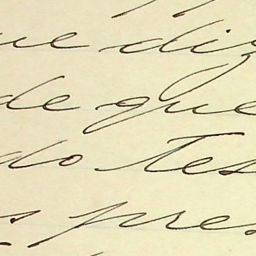 ue diz
de que
do Tes
s pres